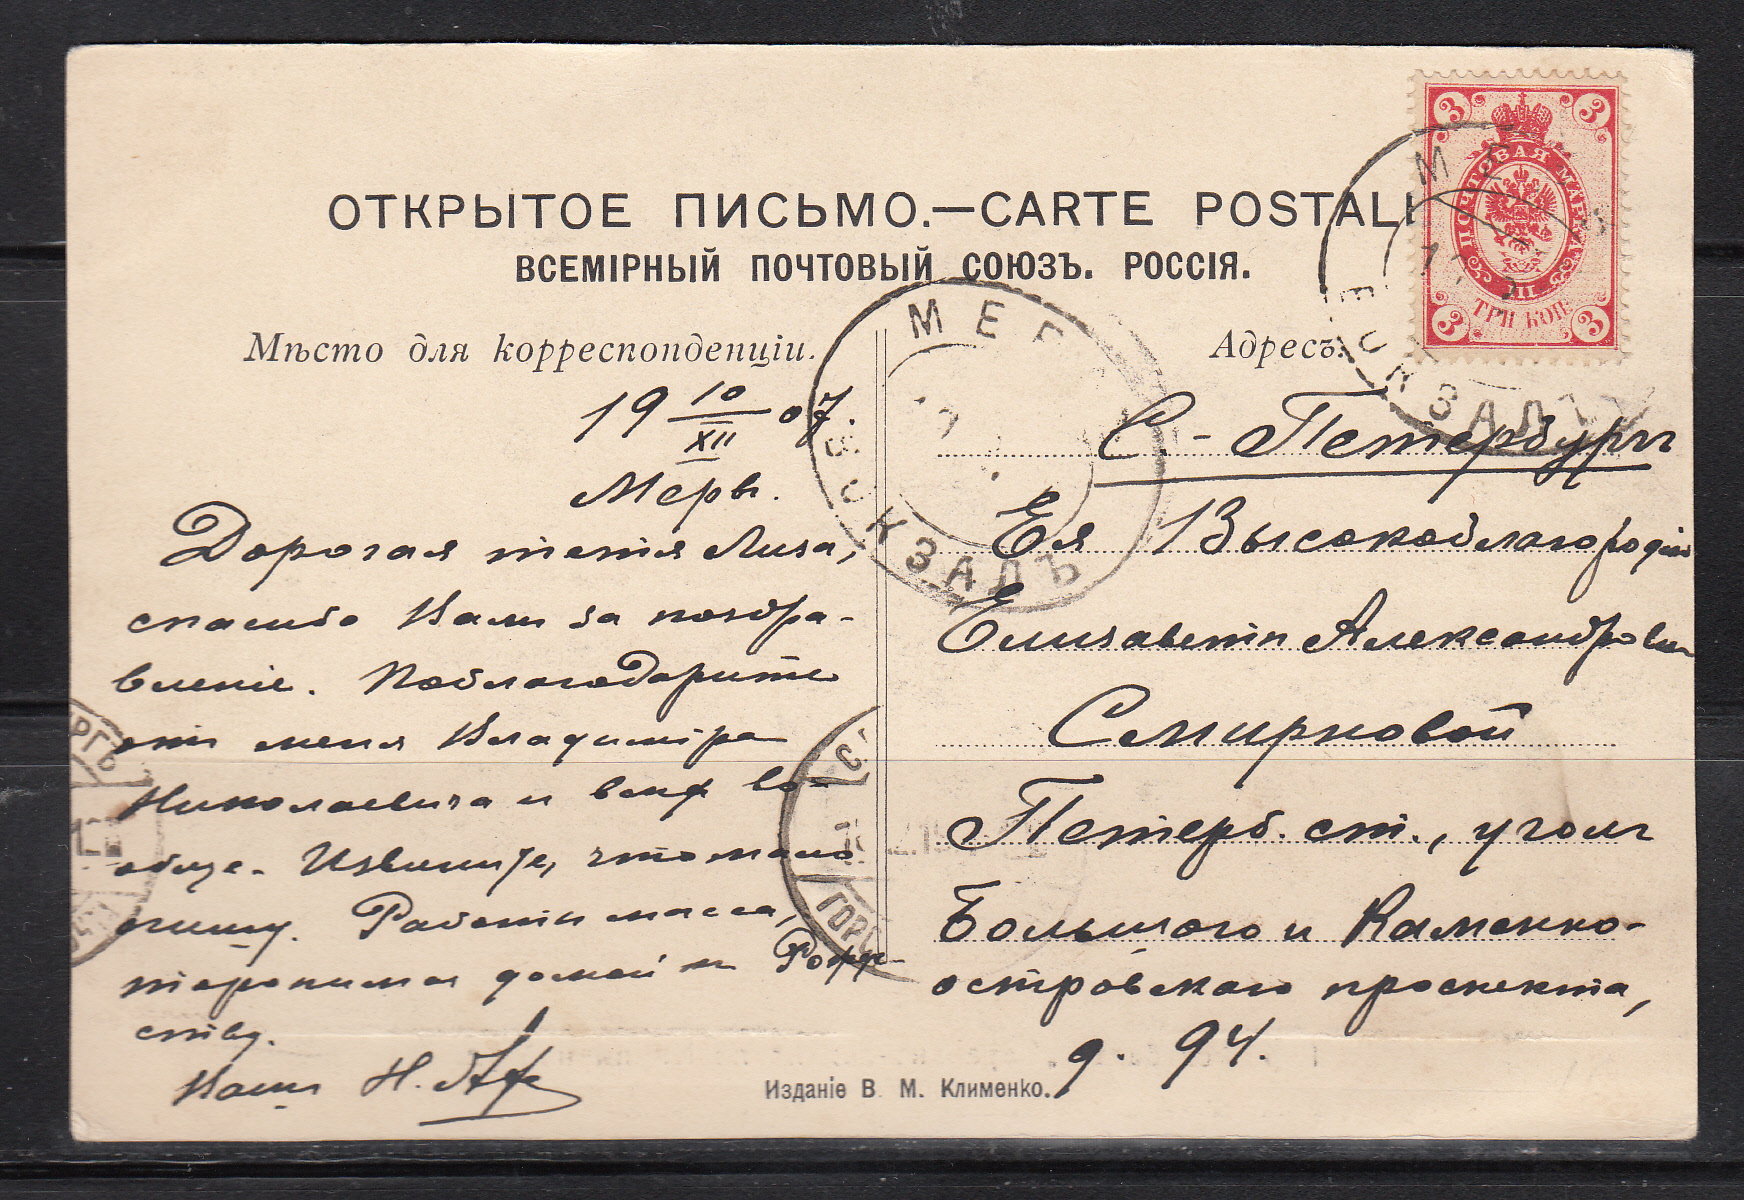 ОТКРЫТОЕ ПИСЬМО.—CARTE POSTAL
ВСЕМІРНЫЙ ПОЧТОВЫЙ СОЮЗЪ. РОССІЯ.
Мѣсто для корреспонденціи.
19 10/XII 07.
Мервъ.
Дорогая тетя Лиза,
спасибо Вамъ за поздра-
вленіе. Поблагодарите
отъ меня Владиміра
Николаевича и всѣхъ во-
обще. Извините, что мало
пишу. Работы масса,
торопимся домой къ Рожде-
ству.
Вашъ Н.
Адресъ:
С.-Петербургъ
Ея Высокоблагородію
Елизаветѣ Александровнѣ
Смирновой
Петерб. ст., уголъ
Большого и Каменно-
островскаго проспекта,
д. 94.
Изданіе В. М. Клименко.
3 3
ПОЧТОВАЯ МАРКА
III
ТРИ КОП.
3 3
МЕР
ВОКЗАЛЪ
М
ВОКЗАЛЪ
РГЪ
С
ГОРО